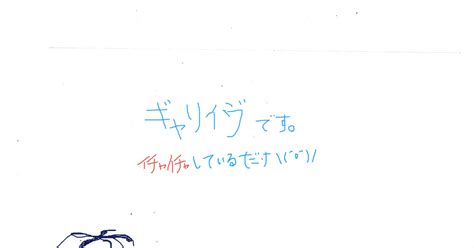 ギャリイヴです。
イチャイチャしているだけ\(^o^)/